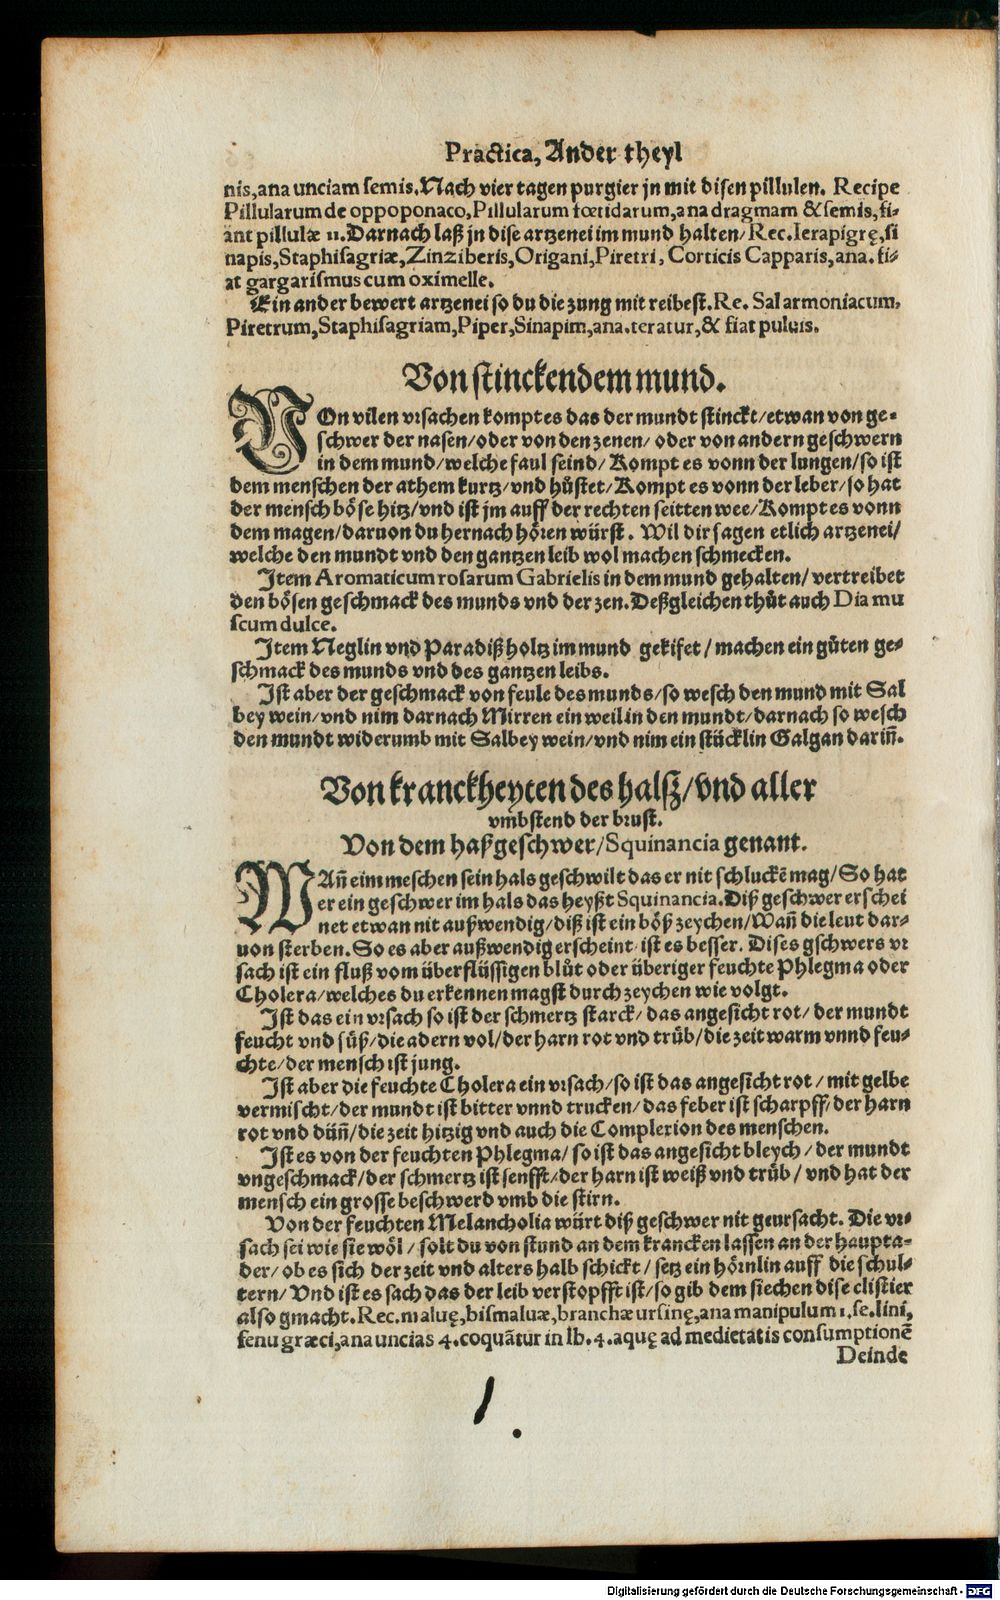 Practica, Ander theyl
nis, ana unciam semis. Nach vier tagen purgier jn mit disen pillulen. Recipe
Pillularum de oppoponaco, Pillularum fœtidarum, ana dragmam & semis, fi-
ant pillulæ 11. Darnach laß jn dise artzenei im mund halten/ Rec. Ierapigrę, si
napis, Staphisagriæ, Zinziberis, Origani, Piretri, Corticis Capparis, ana. fi-
at gargarismus cum oximelle.
Ein ander bewert artzenei so du die zung mit reibest. Re. Sal armoniacum,
Piretrum, Staphisagriam, Piper, Sinapim, ana. teratur, & fiat puluis.
Von stinckendem mund.
VOn vilen vrsachen kompt es das der mundt stinckt/etwan von ge-
schwer der nasen/oder von den zenen/ oder von andern geschwern
in dem mund/welche faul seind/ Kompt es vonn der lungen/so ist
dem menschen der athem kurtz/vnd hůstet/Kompt es vonn der leber/so hat
der mensch böse hitz/vnd ist jm auff der rechten seitten wee/Kompt es vonn
dem magen/daruon du hernach hören würst. Wil dir sagen etlich artzenei/
welche den mundt vnd den gantzen leib wol machen schmecken.
Item Aromaticum rosarum Gabrielis in dem mund gehalten/ vertreibet
den bösen geschmack des munds vnd der zen. Deßgleichen thůt auch Dia mu
scum dulce.
Item Neglin vnd Paradißholtz im mund gekifet/machen ein gůten ge-
schmack des munds vnd des gantzen leibs.
Ist aber der geschmack von feule des munds/so wesch den mund mit Sal
bey wein/vnd nim darnach Mirren ein weil in den mundt/darnach so wesch
den mundt widerumb mit Salbey wein/vnd nim ein stücklin Galgan dariñ.
Von kranckheyten des halsz/vnd aller
vmbstend der brust.
Von dem haßgeschwer/Squinancia genant.
WAñ eim meschen sein hals geschwilt das er nit schluckē mag/So hat
er ein geschwer im hals das heyßt Squinancia. Diß geschwer erschei
net etwan nit außwendig/diß ist ein böß zeychen/Wañ die leut dar-
uon sterben. So es aber außwendig erscheint ist es besser. Dises gschwers vr
sach ist ein fluß vom überflüssigen blůt oder überiger feuchte Phlegma oder
Cholera/welches du erkennen magst durch zeychen wie volgt.
Ist das ein vrsach so ist der schmertz starck/ das angesicht rot/ der mundt
feucht vnd süß/die adern vol/der harn rot vnd trüb/die zeit warm vnnd feu-
chte/der mensch ist jung.
Ist aber die feuchte Cholera ein vrsach/so ist das angesicht rot/mit gelbe
vermischt/der mundt ist bitter vnnd trucken/das feber ist scharpff/der harn
rot vnd düñ/die zeit hitzig vnd auch die Complexion des menschen.
Ist es von der feuchten Phlegma/so ist das angesicht bleych/der mundt
vngeschmack/der schmertz ist senfft/der harn ist weiß vnd trüb/ vnd hat der
mensch ein grosse beschwerd vmb die stirn.
Von der feuchten Melancholia würt diß geschwer nit geursacht. Die vr-
sach sei wie sie wöl/ solt du von stund an dem krancken lassen an der haupta-
der/ob es sich der zeit vnd alters halb schickt/ setz ein hörnlin auff die schul-
tern/ Vnd ist es sach das der leib verstopfft ist/so gib dem siechen dise clistier
also gmacht. Rec. maluę, bismaluæ, branchæ ursinę, ana manipulum 1. se. lini,
fenu græci, ana uncias 4. coquãtur in lb. 4. aquę ad medietatis consumptionē
Deinde
Digitalisierung gefördert durch die Deutsche Forschungsgemeinschaft - DFG